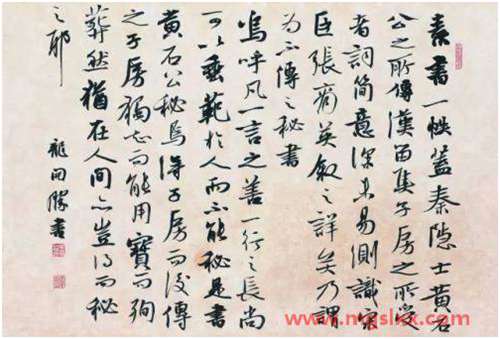 素書一帙蓋秦隱士黃石
公之所傳漢留侯子房之所受
者詞簡意深未易測識宋
臣張商英叙之詳矣乃謂
為不傳之秘書
嗚呼凡一言之善一行之長尚
可以垂範於人而不能秘是書
黃石公秘焉得子房而後傳
之子房獨知而能用寶而殉
葬然猶在人間亦豈得而秘
之耶
龍開勝書
www.mgslxx.com